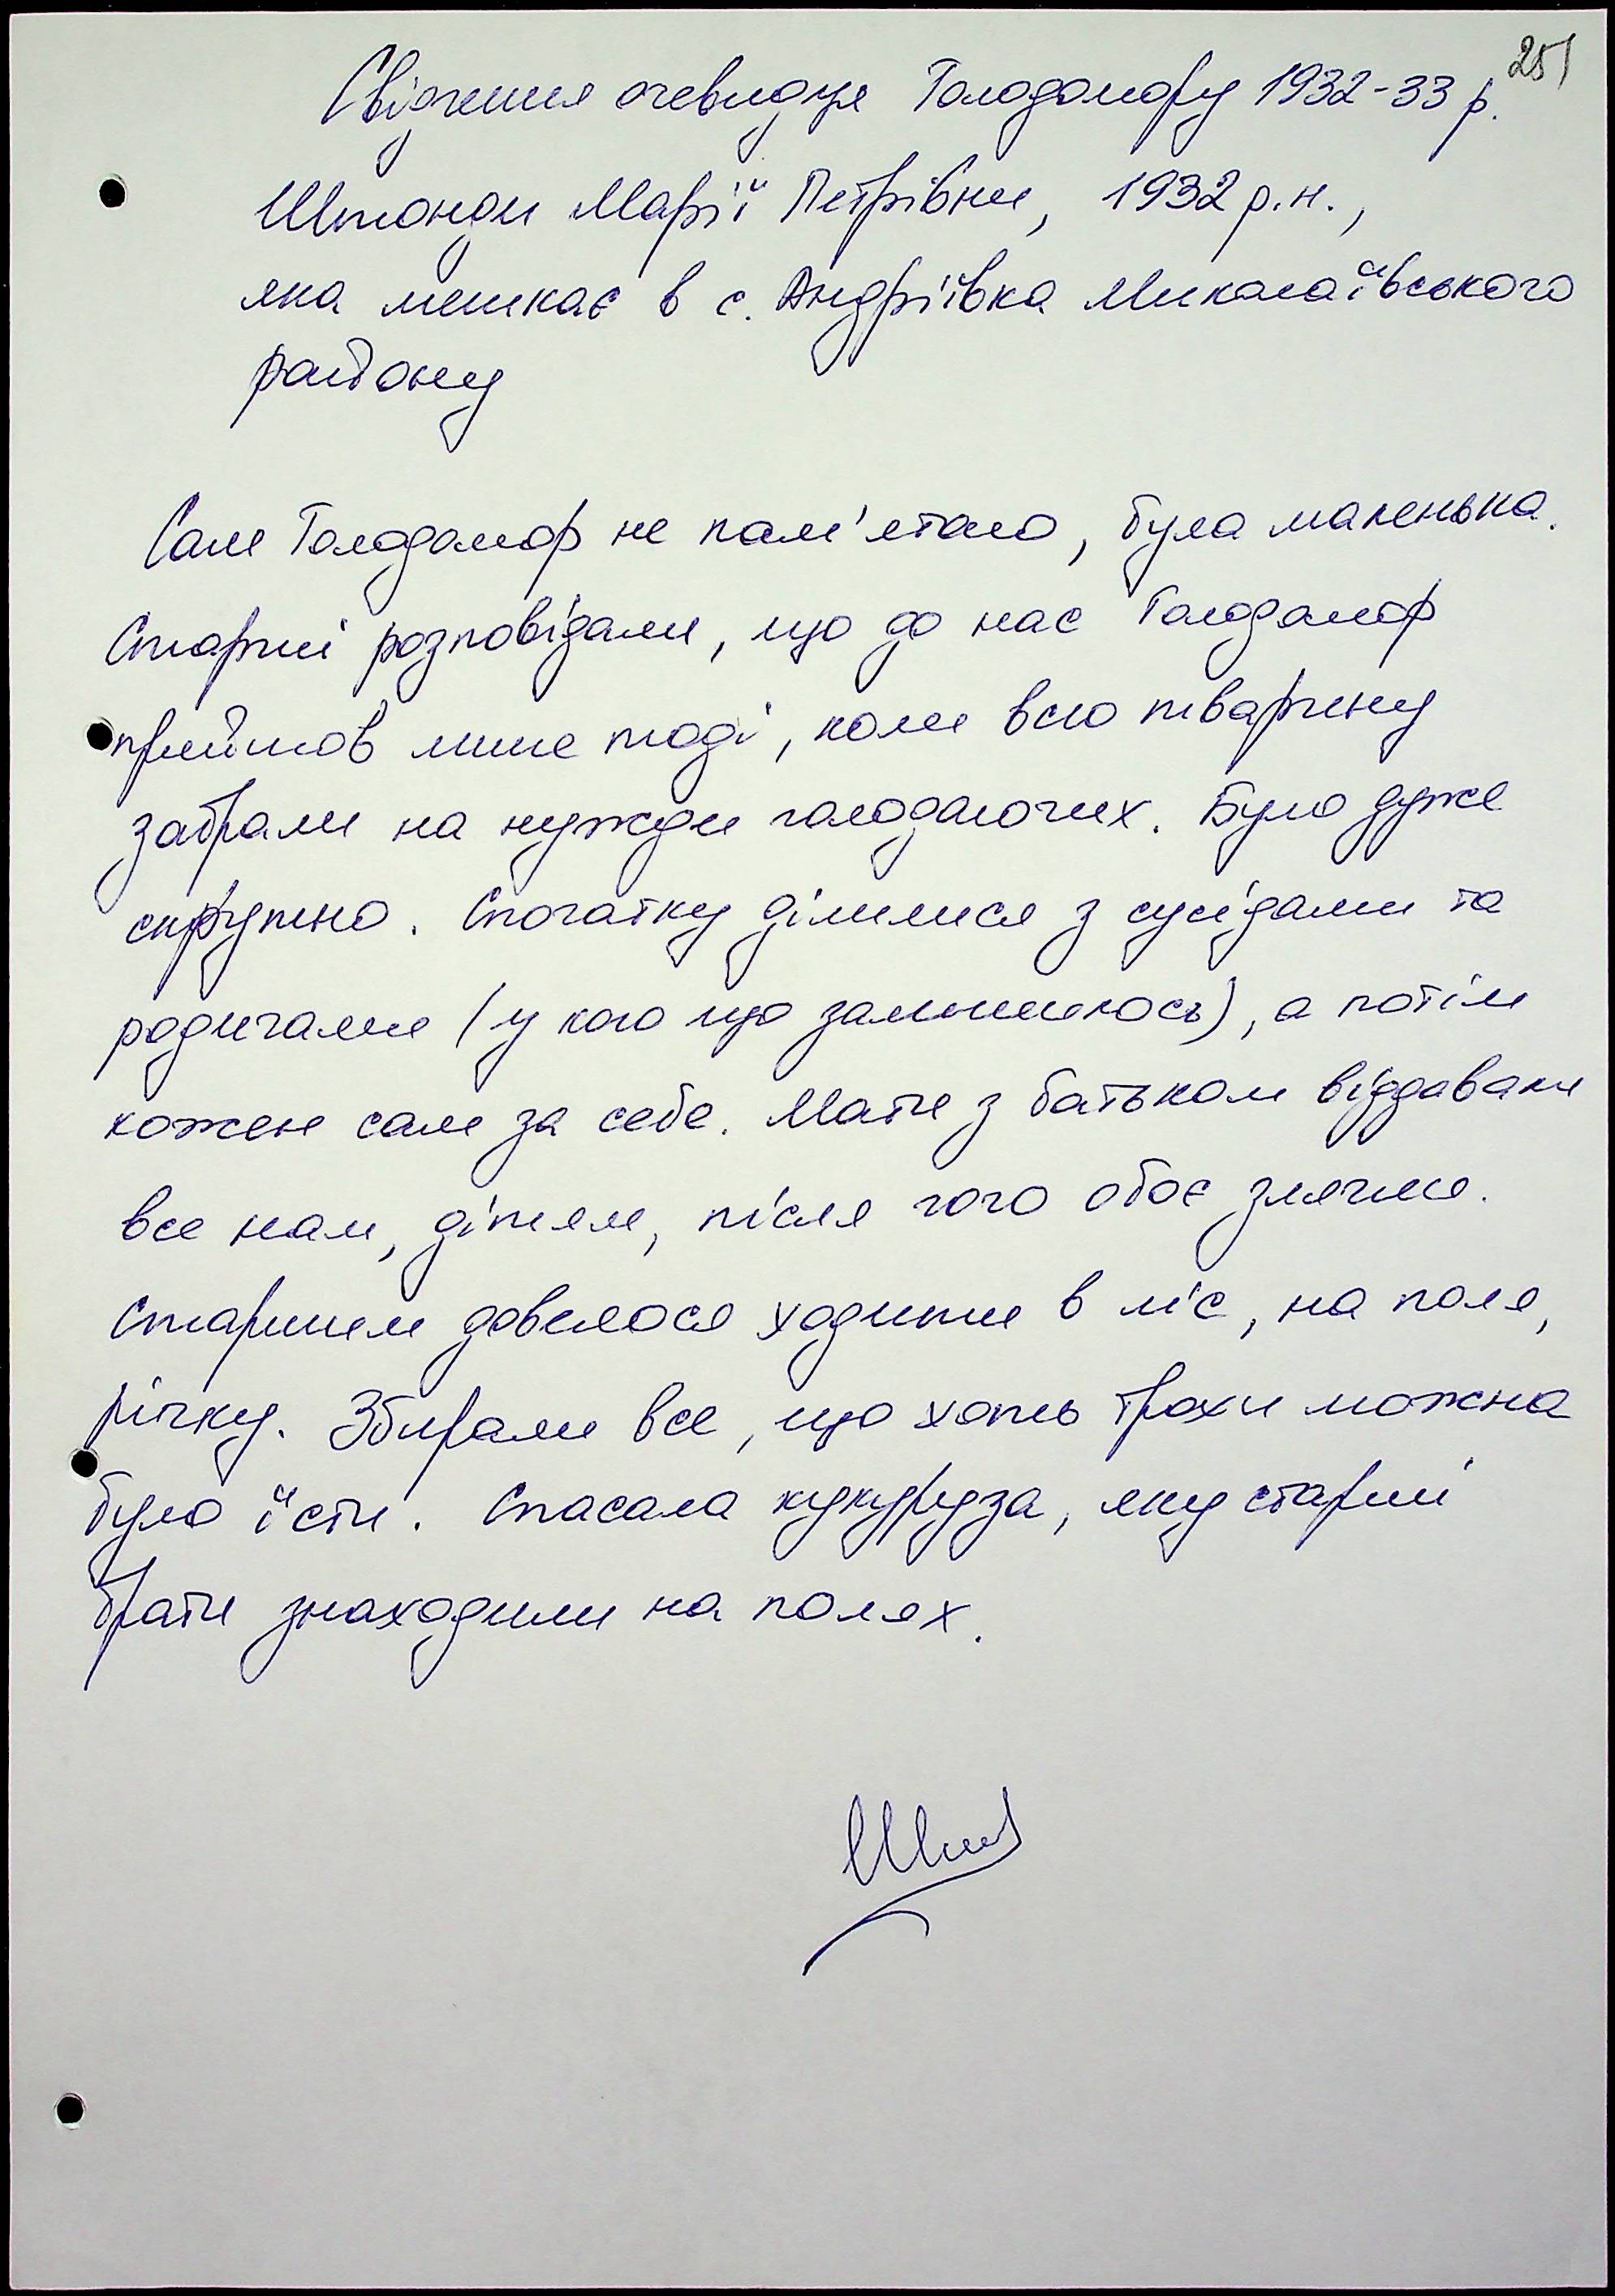 251
Свідчення очевидця Голодомору 1932-33 р.
Штонди Марії Петрівни, 1932 р.н.,
яка мешкає в с. Андріївка Миколаївського
району
Сам Голодомор не пам'ятаю, була маленька.
Старші розповідали, що до нас Голодомор
прийшов лише тоді, коли всю тварину
забрали на нужди голодаючих. Було дуже
скрутно. Спочатку ділилися з сусідами та
родичами (у кого що залишилось), а потім
кожен сам за себе. Мати з батьком віддавали
все нам, дітям, після чого обоє злягли.
Старшим довелося ходити в ліс, на поля,
річку. Збирали все, що хоть трохи можна
було їсти. Спасала кукурудза, яку старші
брати знаходили на полях.